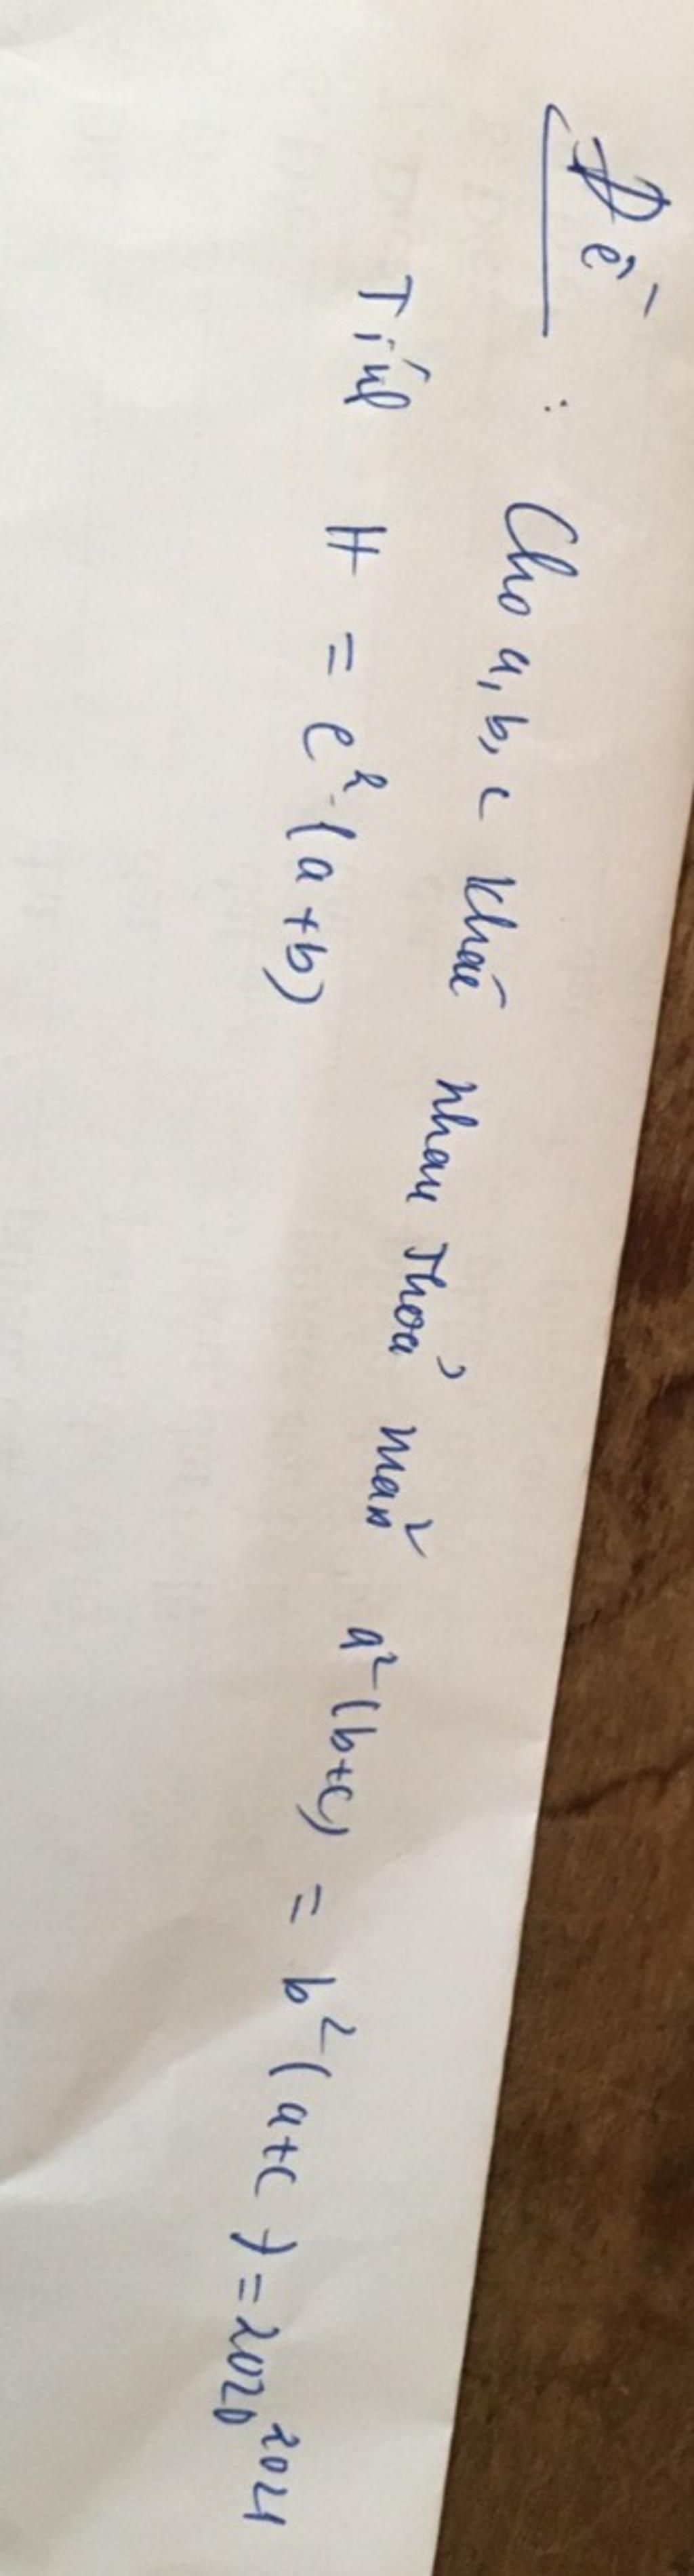 Đề : Cho a, b, c khác nhau thoả mãn a²(b+c) = b²(a+c) = 2020²⁰²¹
Tính H = c²(a+b)